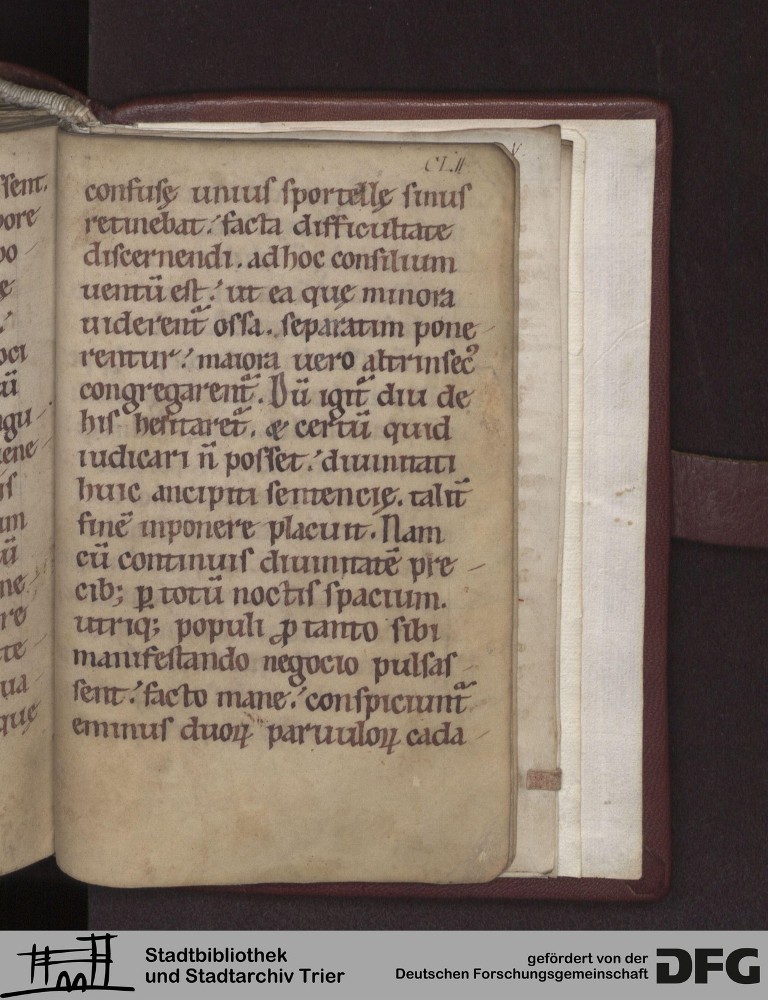 CLII
V.
ssent.
pore
po
ę
oci
ū
ngu
iene
is
um
ū
ne
re
te
ua
que
confusę unius sportellę sinus
retinebat. facta difficultate
discernendi. ad hoc consilium
uentū est. ut ea quę minora
uiderent᷒ ossa. separatim pone
rentur. maiora uero altrinsecꝰ
congregarent᷒. Dū igit᷒ diu de
his hesitaret᷒. & certū quid
iudicari n̄ posset. diuinitati
huic ancipiti sentencię. talit᷒
finē inponere placuit. Nam
cū continuis diuinitatē pre
cib; ꝑ totū noctis spacium.
utriq; populi ꝓ tanto sibi
manifestando negocio pulsas
sent. facto mane. conspiciunt᷒
eminus duoꝝ paruuloꝝ cada
Stadtbibliothek
und Stadtarchiv Trier
gefördert von der
Deutschen Forschungsgemeinschaft
DFG